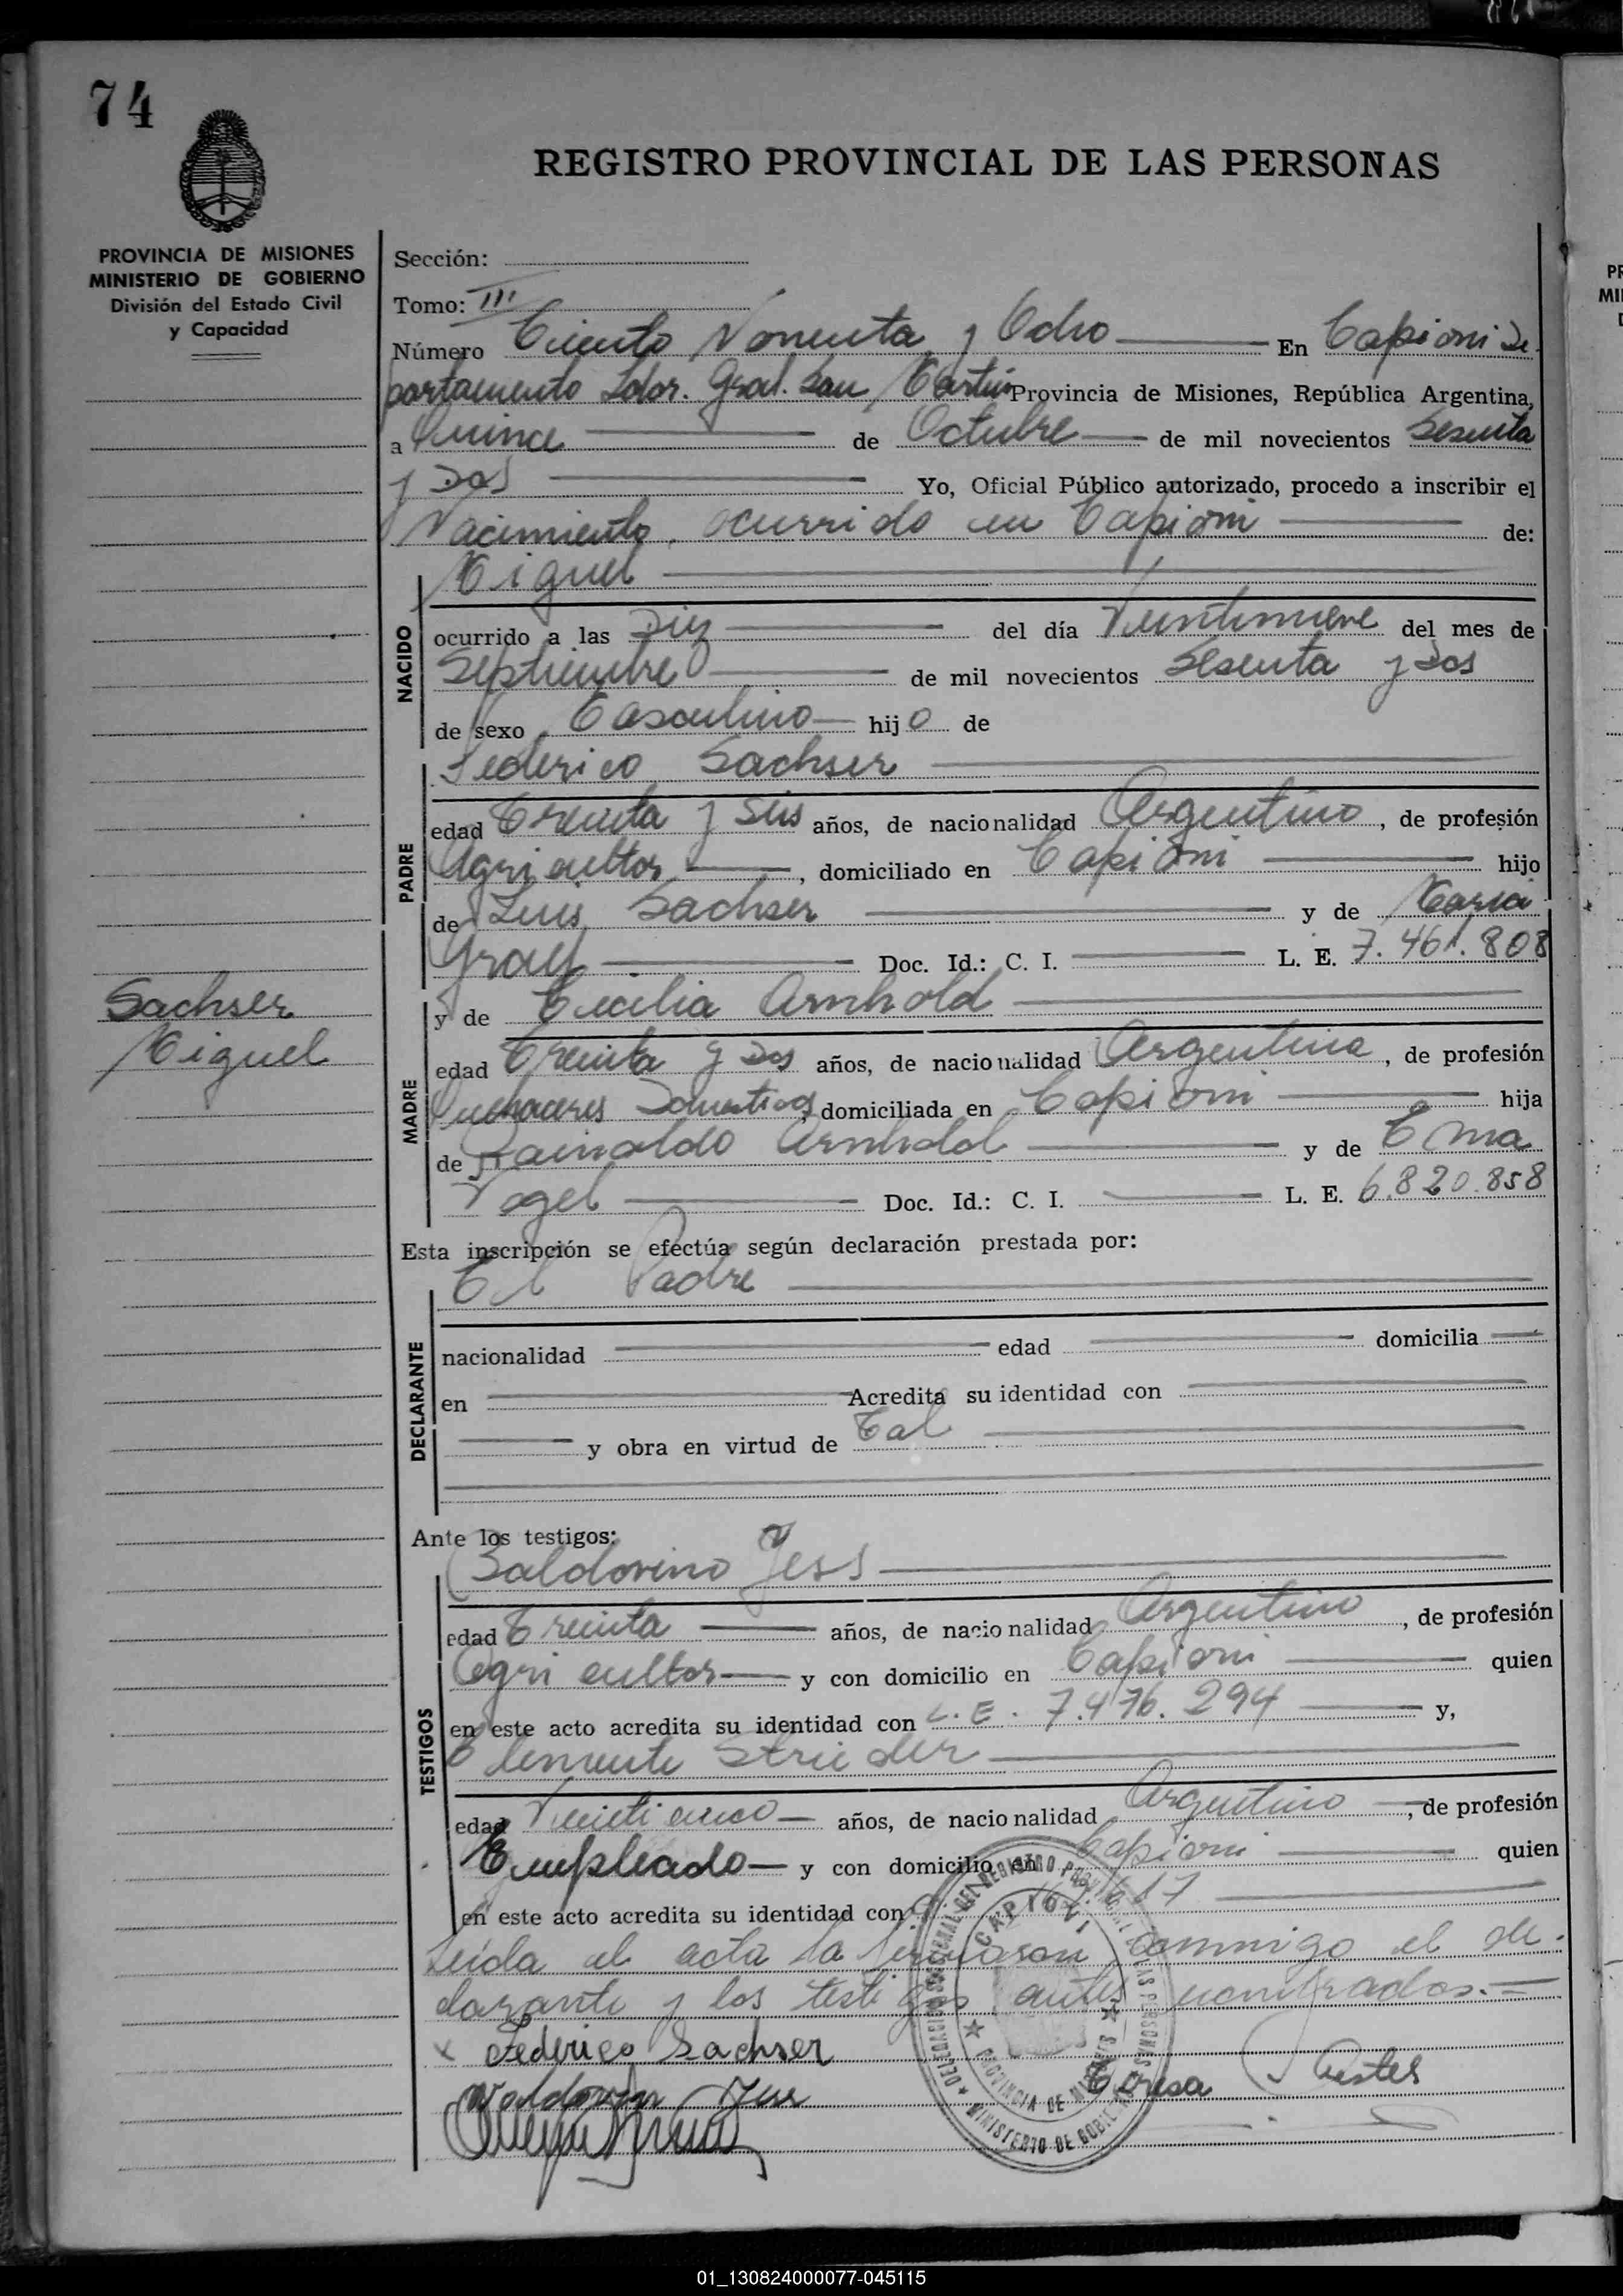 74
REGISTRO PROVINCIAL DE LAS PERSONAS
PROVINCIA DE MISIONES
MINISTERIO DE GOBIERNO
División del Estado Civil
y Capacidad
Sachser
Miguel
Sección:
Tomo: III
Número Ciento Noventa y Ocho En Capiovi De
partamento Ldor. Gral. San Martín Provincia de Misiones, República Argentina,
a Quince de Octubre de mil novecientos Sesenta
y Dos Yo, Oficial Público autorizado, procedo a inscribir el
Nacimiento, ocurrido en Capiovi de:
Miguel
NACIDO
ocurrido a las Diez del día Veintinueve del mes de
Septiembre de mil novecientos Sesenta y Dos
de sexo Masculino hijo de
Federico Sachser
PADRE
edad Treinta y Seis años, de nacionalidad Argentino, de profesión
Agricultor, domiciliado en Capiovi hijo
de Luis Sachser y de Maria
Doc. Id.: C. I. L. E. 7.461.808
y de Cecilia Arnhold
MADRE
edad Treinta y Dos años, de nacionalidad Argentina, de profesión
Quehaceres Domesticos, domiciliada en Capiovi hija
de Rainoldo Arnhold y de Ema
Vogel Doc. Id.: C. I. L. E. 6.820.858
Esta inscripción se efectúa según declaración prestada por:
El Padre
DECLARANTE
nacionalidad edad domicilia
en Acredita su identidad con
y obra en virtud de Tal
Ante los testigos:
Baldovino Jess
TESTIGOS
edad Treinta años, de nacionalidad Argentino, de profesión
Agricultor y con domicilio en Capiovi quien
en este acto acredita su identidad con L. E. 7.476.294 y,
Clemente Strieder
edad Veinticinco años, de nacionalidad Argentino, de profesión
Empleado y con domicilio en Capiovi quien
en este acto acredita su identidad con
Leida el acta la firmaron conmigo el de-
clarante y los testigos antes nombrados.=
x Federico Sachser
Teresa
DELEGACION SECCIONAL DEL REGISTRO PROVINCIAL DE LAS PERSONAS
CAPIOVI
PROVINCIA DE MISIONES
MINISTERIO DE GOBIERNO
01_130824000077-045115